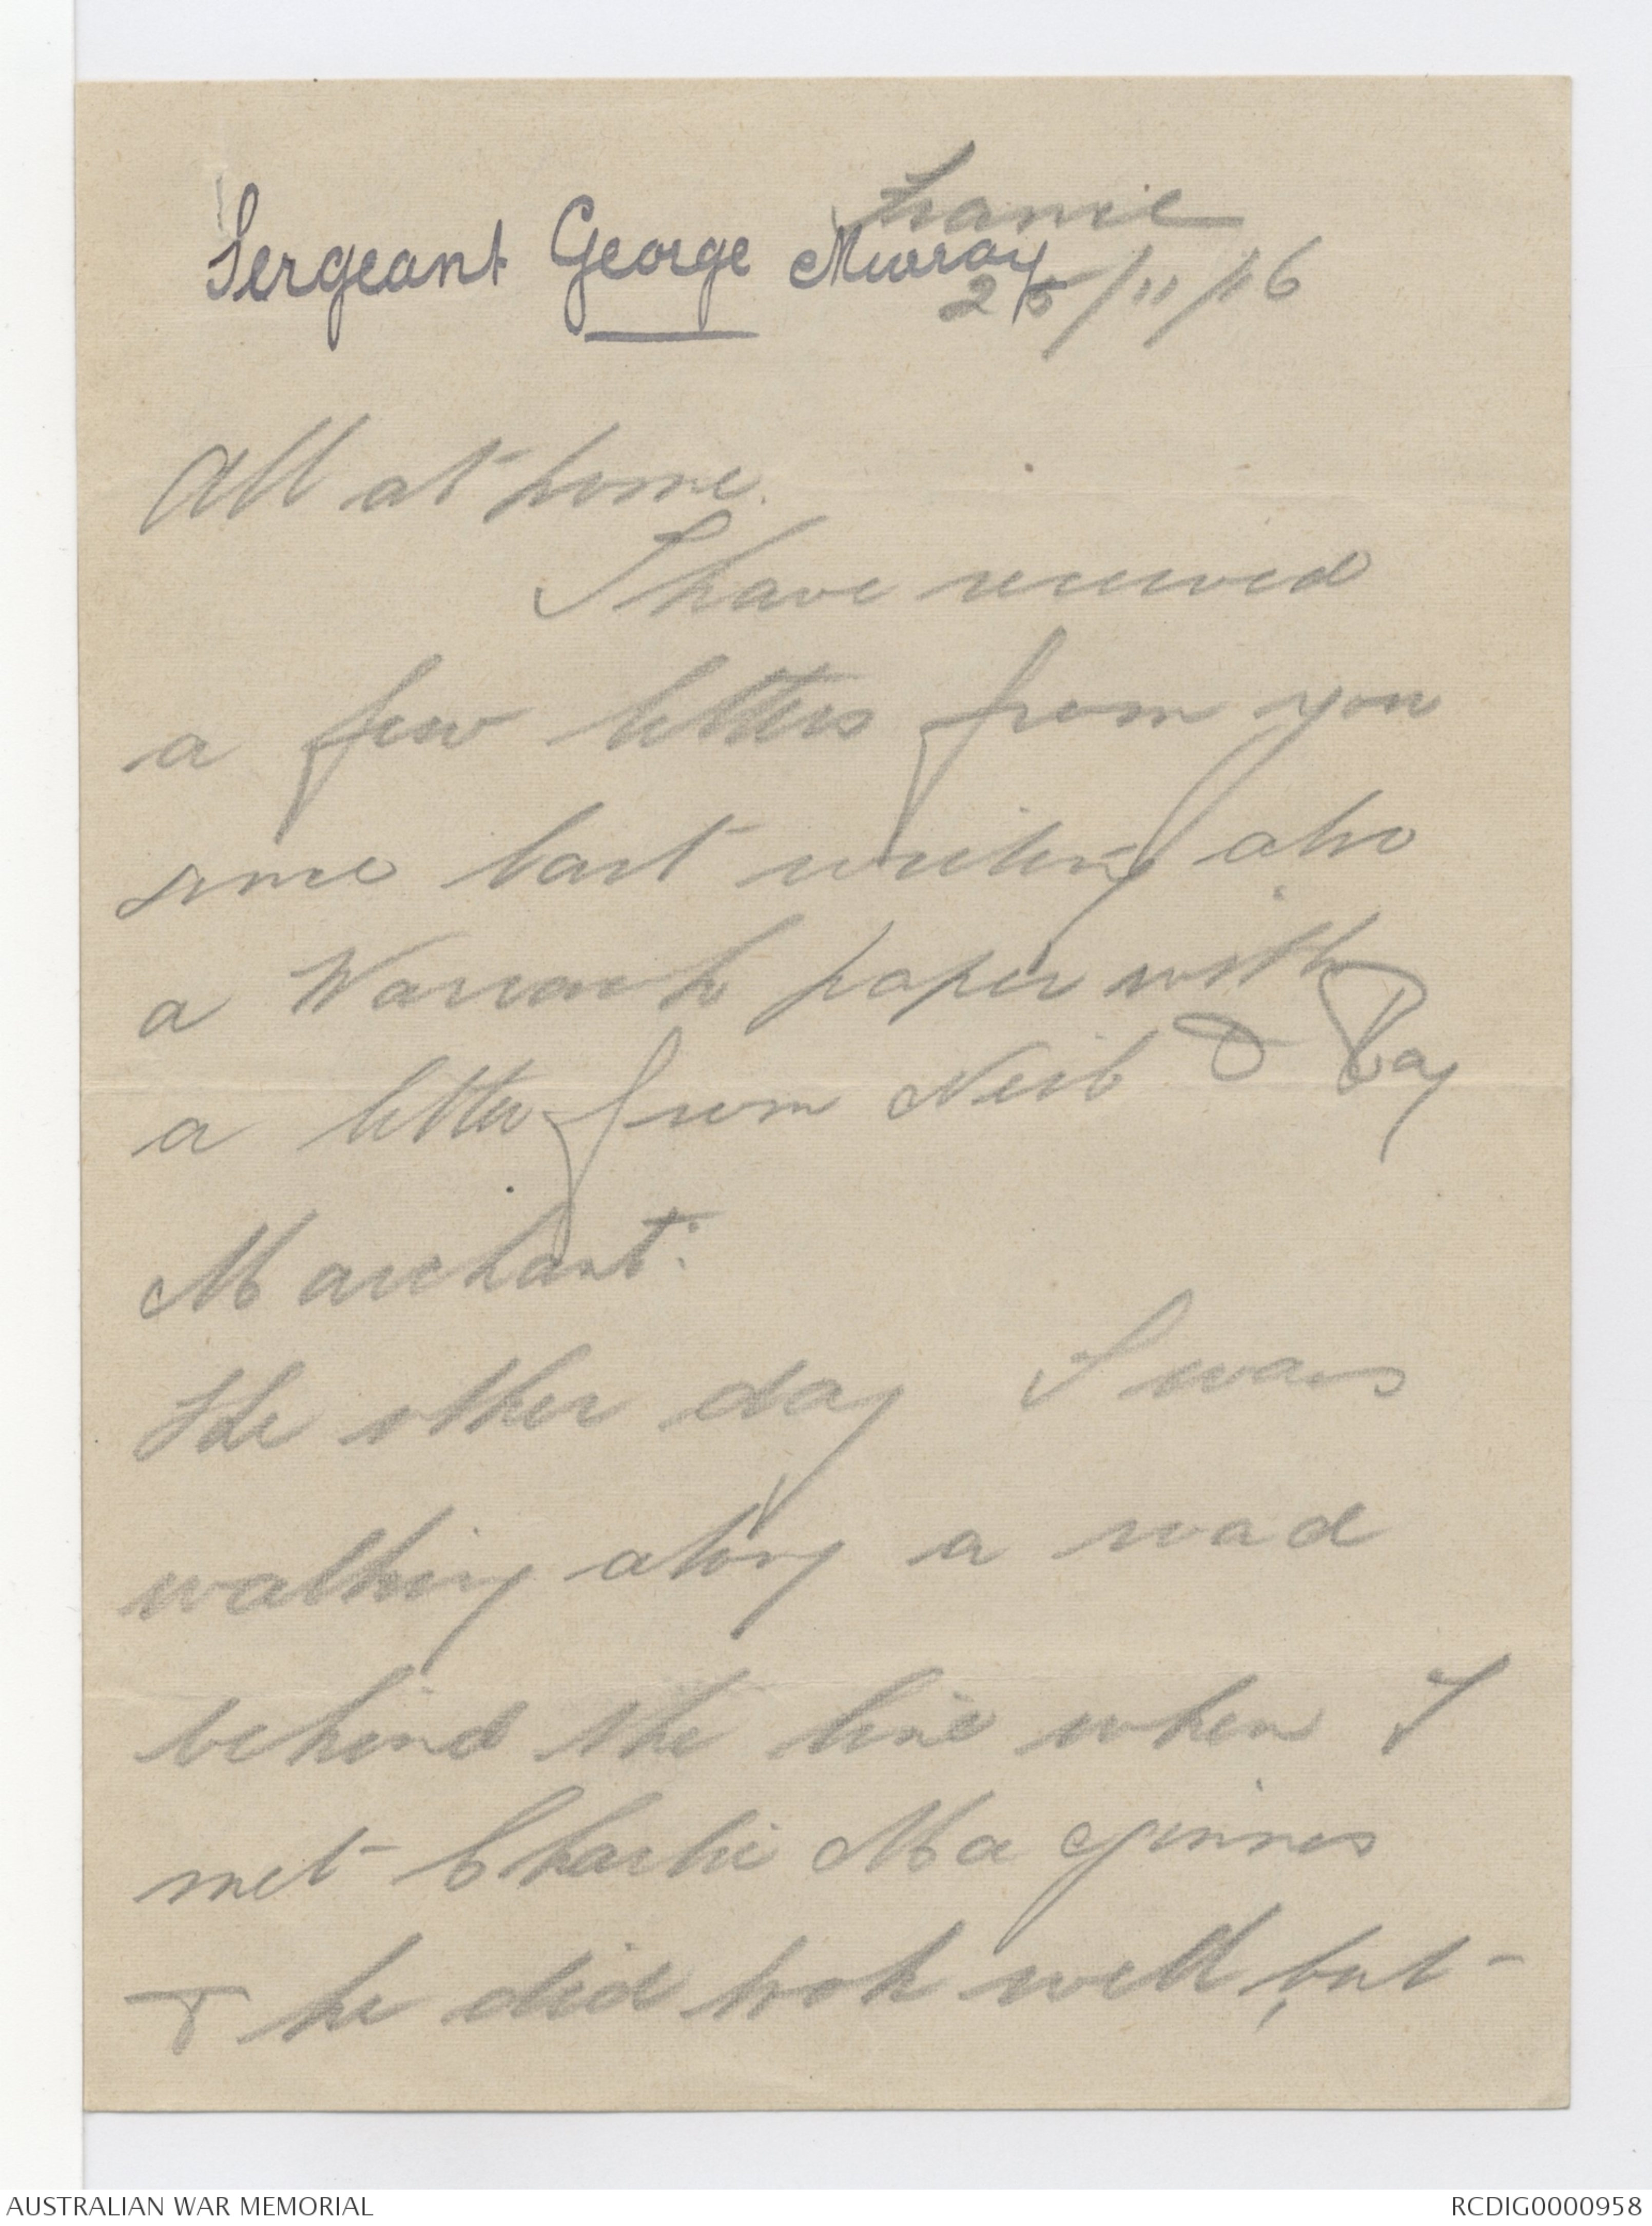 France
Sergeant George Murray
25/11/16
All at home.
I have received
a few letters from you
since last writing also
a Warrack paper with
a letter from Neib & Ray
Marchant.
The other day I was
walking along a road
behind the line when I
met Charlie MaGinnes
& he did look well, but
AUSTRALIAN WAR MEMORIAL
RCDIG0000958